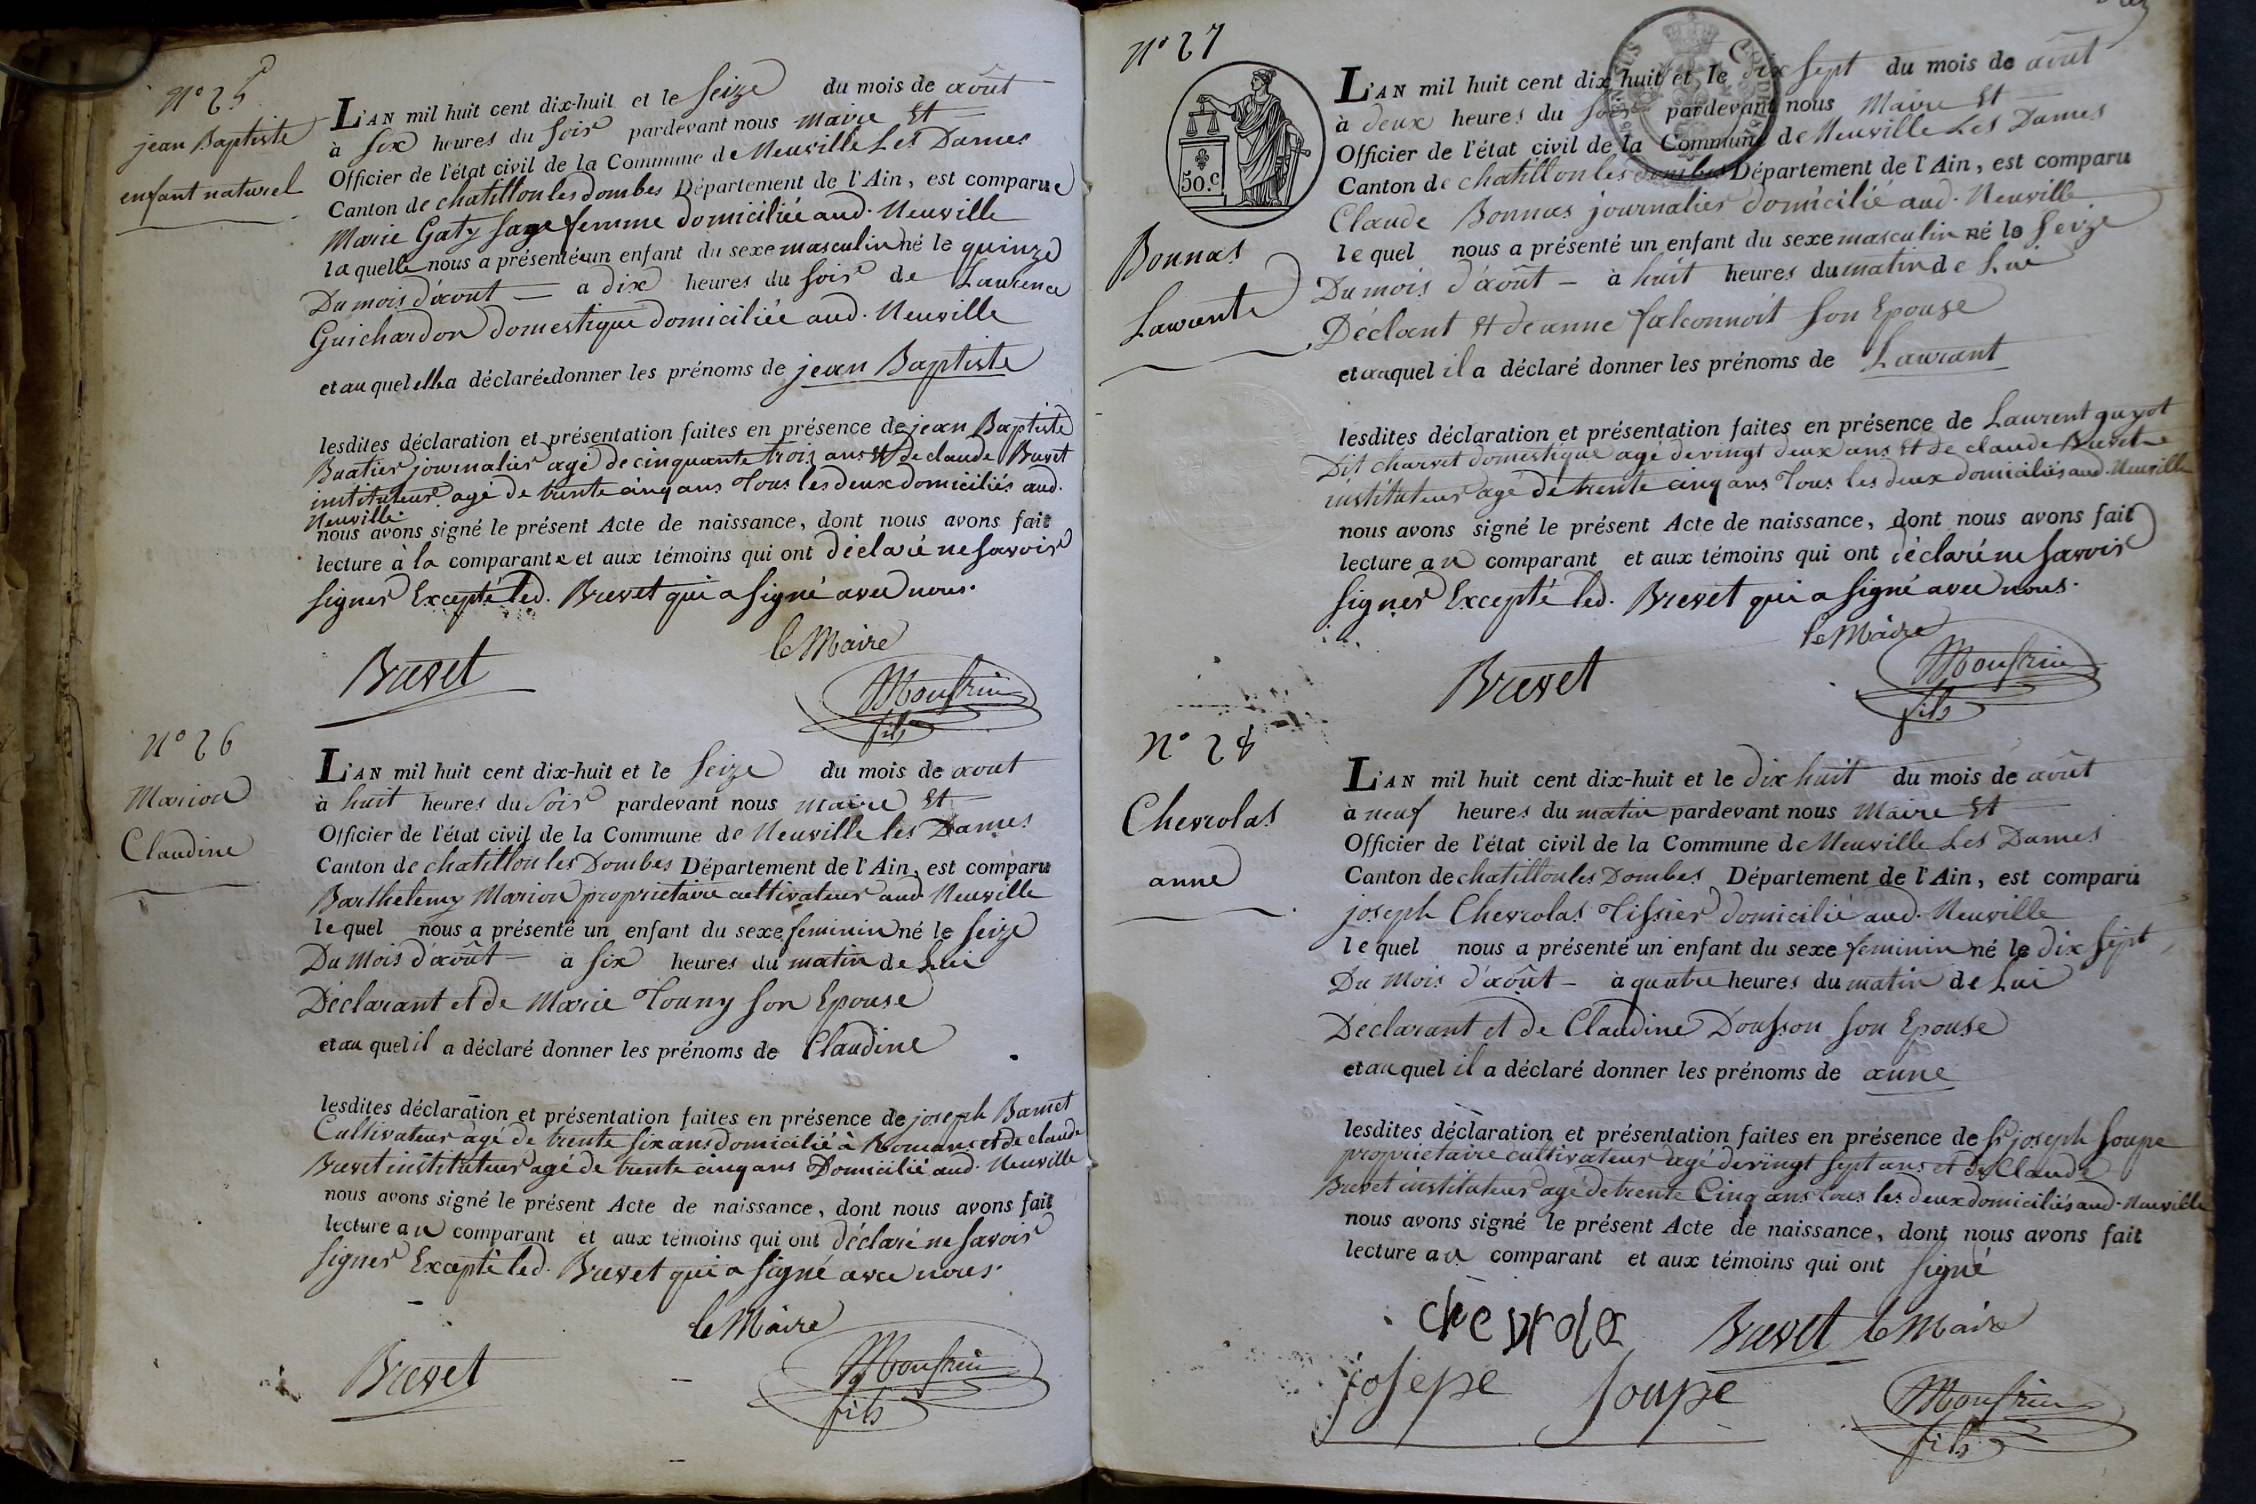 N° 25
jean Baptiste
enfant naturel
L'AN mil huit cent dix-huit et le seize du mois de août
à six heures du soir pardevant nous maire et
Officier de l'état civil de la Commune de Neuville Les Dames
Canton de chatillon les dombes Département de l'Ain, est comparue
Marie Gaty sage femme domiciliée aud. Neuville
laquelle nous a présentée un enfant du sexe masculin né le quinze
Du mois d'aout — a dix heures du soir de Laurence
Guichardon domestique domiciliée aud. Neuville
et au quel elle a déclarée donner les prénoms de jean Baptiste
lesdites déclaration et présentation faites en présence de jean Baptiste
Buatier journalier agé de cinquante trois ans et de claude Brevet
instituteur agé de trente cinq ans Tous les deux domiciliés aud.
Neuville
nous avons signé le présent Acte de naissance, dont nous avons fait
lecture à la comparante et aux témoins qui ont déclaré ne savoir
signer Excepté led. Brevet qui a signé avec nous.
le Maire
Brevet
Monfrin
fils
N° 26
Marion
Claudine
L'AN mil huit cent dix-huit et le seize du mois de aout
à huit heures du soir pardevant nous maire et
Officier de l'état civil de la Commune de Neuville les Dames
Canton de chatillon les Dombes Département de l'Ain, est comparu
Barthelemy Marion propriétaire cultivateur aud. Neuville
lequel nous a présenté un enfant du sexe feminin né le seize
Du Mois d'août — à six heures du matin de Lui
Déclarant et de Marie Touny son Epouse
et au quel il a déclaré donner les prénoms de Claudine
lesdites déclaration et présentation faites en présence de joseph Bamet
Cultivateur agé de trente six ans domicilié à Romans et de claude
Brevet instituteur agé de trente cinq ans Domicilié aud. Neuville
nous avons signé le présent Acte de naissance, dont nous avons fait
lecture au comparant et aux témoins qui ont déclaré ne savoir
signer Excepté led. Brevet qui a signé avec nous.
le Maire
Brevet
Monfrin
fils
N° 27
50.c
Bonnas
Laurente
L'AN mil huit cent dix-huit et le dix sept du mois de août
à deux heures du soir pardevant nous Maire et
Officier de l'état civil de la Commune de Neuville Les Dames
Canton de chatillon les dombes Département de l'Ain, est comparu
Claude Bonnas journalier domicilié aud. Neuville
lequel nous a présenté un enfant du sexe masculin né le seize
Du mois d'août — à huit heures du matin de Lui
Déclant et de anne falconnoit son Epouse
et auquel il a déclaré donner les prénoms de Laurant
lesdites déclaration et présentation faites en présence de Laurent guyot
Dit charvet domestique agé de vingt deux ans et de claude Brevet
instituteur agé de trente cinq ans Tous les deux domiciliés aud. Neuville
nous avons signé le présent Acte de naissance, dont nous avons fait
lecture au comparant et aux témoins qui ont déclaré ne savoir
signer Excepté led. Brevet qui a signé avec nous.
le Maire
Brevet
Monfrin
fils
N° 28
Chevrolas
anne
L'AN mil huit cent dix-huit et le dix huit du mois de août
à neuf heures du matin pardevant nous Maire et
Officier de l'état civil de la Commune de Neuville Les Dames
Canton de chatillon les Dombes Département de l'Ain, est comparu
joseph Chevrolas Tissier domicilié aud. Neuville
lequel nous a présenté un enfant du sexe feminin né le dix sept
Du Mois d'août — à quatre heures du matin de Lui
Déclarant et de Claudine Dousson son Epouse
et auquel il a déclaré donner les prénoms de anne
lesdites déclaration et présentation faites en présence de Sr joseph Soupe
propriétaire cultivateur agé de vingt sept ans et de Claude
Brevet instituteur agé de trente Cinq ans tous les deux domiciliés aud. Neuville
nous avons signé le présent Acte de naissance, dont nous avons fait
lecture au comparant et aux témoins qui ont signé
chevrola Brevet le Maire
josepe soupe
Monfrin
fils